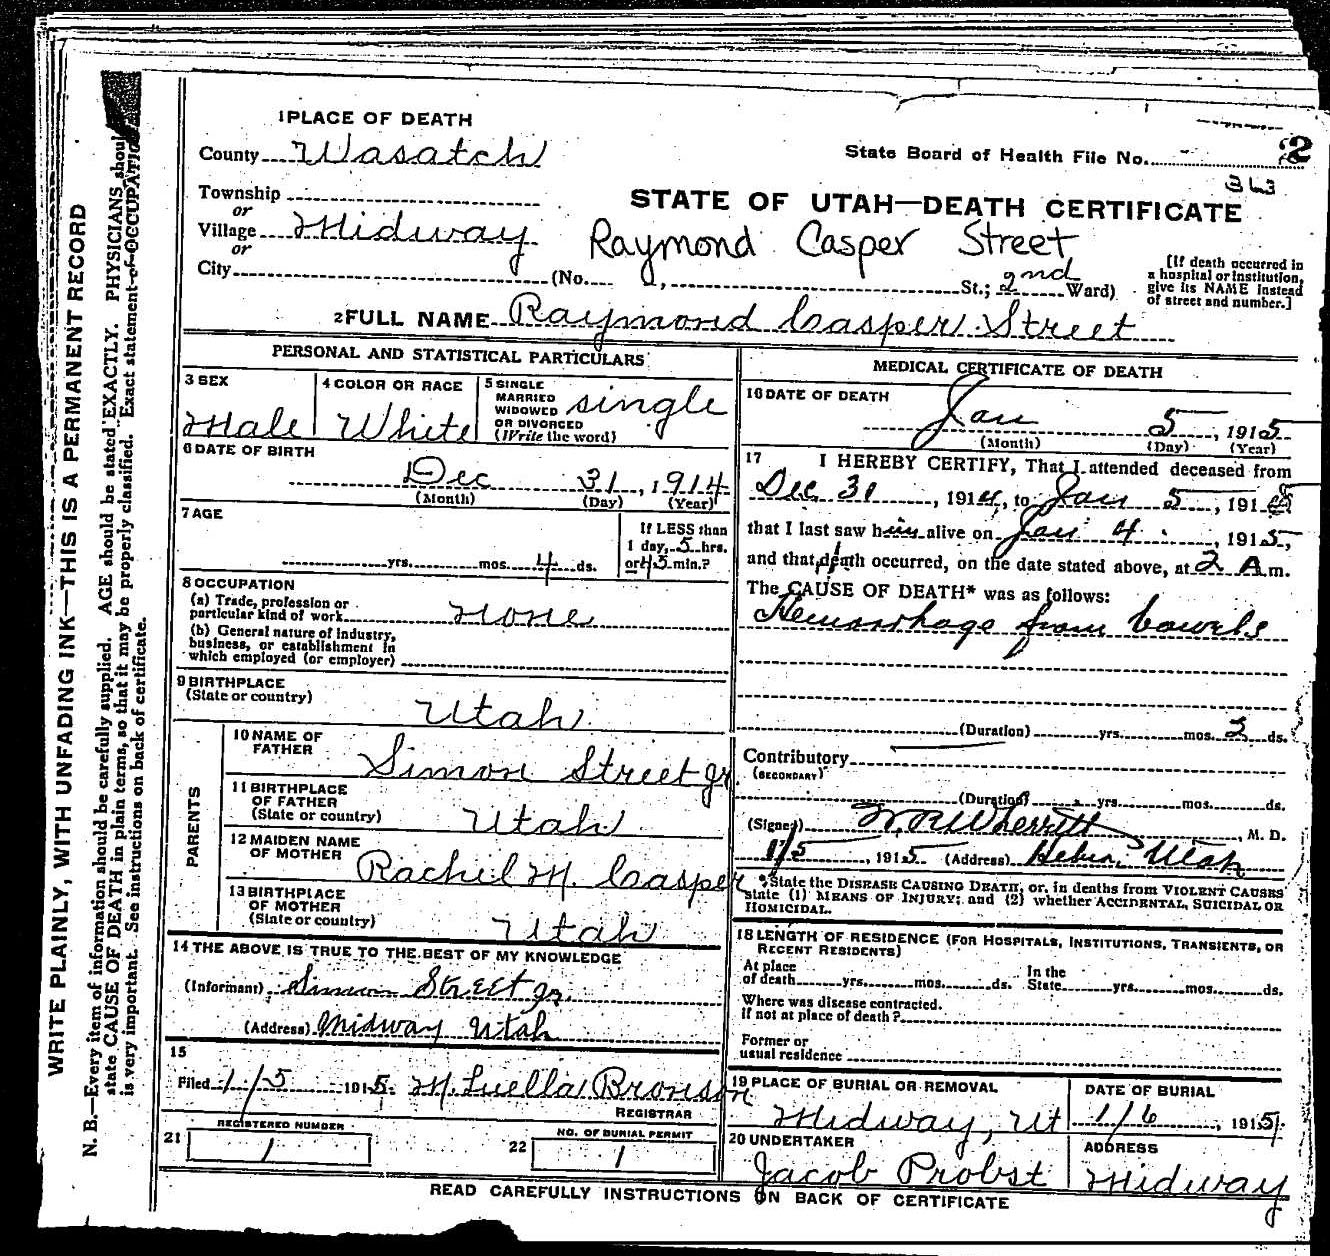 WRITE PLAINLY, WITH UNFADING INK—THIS IS A PERMANENT RECORD
N. B.—Every item of information should be carefully supplied. AGE should be stated EXACTLY. PHYSICIANS should
state CAUSE OF DEATH in plain terms, so that it may be properly classified. Exact statement of OCCUPATION
is very important. See instructions on back of certificate.
1 PLACE OF DEATH
County Wasatch
State Board of Health File No. 2
363
Township
or
Village Midway
or
City
STATE OF UTAH—DEATH CERTIFICATE
Raymond Casper Street
(No. , St.; 2nd Ward)
[If death occurred in
a hospital or institution,
give its NAME instead
of street and number.]
2 FULL NAME Raymond Casper Street
PERSONAL AND STATISTICAL PARTICULARS
3 SEX
Male
4 COLOR OR RACE
White
5 SINGLE
MARRIED
WIDOWED
OR DIVORCED
(Write the word)
single
6 DATE OF BIRTH
Dec 31, 1914
(Month) (Day) (Year)
7 AGE
yrs. mos. 4 ds.
If LESS than
1 day, 5 hrs.
or 45 min.?
8 OCCUPATION
(a) Trade, profession or
particular kind of work None
(b) General nature of industry,
business, or establishment in
which employed (or employer)
9 BIRTHPLACE
(State or country)
Utah
PARENTS
10 NAME OF
FATHER
Simon Street Jr
11 BIRTHPLACE
OF FATHER
(State or country)
Utah
12 MAIDEN NAME
OF MOTHER
Rachel M. Casper
13 BIRTHPLACE
OF MOTHER
(State or country)
Utah
14 THE ABOVE IS TRUE TO THE BEST OF MY KNOWLEDGE
(Informant) Simon Street Jr.
(Address) Midway Utah
15
Filed 1/5 1915. M. Luella Bronson
REGISTRAR
21
REGISTERED NUMBER
1
22
NO. OF BURIAL PERMIT
1
MEDICAL CERTIFICATE OF DEATH
16 DATE OF DEATH
Jan 5, 1915
(Month) (Day) (Year)
17 I HEREBY CERTIFY, That I attended deceased from
Dec 31, 1914, to Jan 5, 1915
that I last saw him alive on Jan 4, 1915,
and that death occurred, on the date stated above, at 2 A m.
The CAUSE OF DEATH* was as follows:
Hemorrhage from bowels
(Duration) yrs. mos. 2 ds.
Contributory
(SECONDARY)
(Duration) yrs. mos. ds.
(Signed) W. R. Wherritt, M. D.
1/5, 1915 (Address) Heber, Utah
*State the DISEASE CAUSING DEATH, or, in deaths from VIOLENT CAUSES
state (1) MEANS OF INJURY; and (2) whether ACCIDENTAL, SUICIDAL OR
HOMICIDAL.
18 LENGTH OF RESIDENCE (FOR HOSPITALS, INSTITUTIONS, TRANSIENTS, OR
RECENT RESIDENTS)
At place
of death yrs. mos. ds.
In the
State yrs. mos. ds.
Where was disease contracted.
if not at place of death?
Former or
usual residence
19 PLACE OF BURIAL OR REMOVAL
Midway, Ut
DATE OF BURIAL
1/6, 1915
20 UNDERTAKER
Jacob Probst
ADDRESS
Midway
READ CAREFULLY INSTRUCTIONS ON BACK OF CERTIFICATE